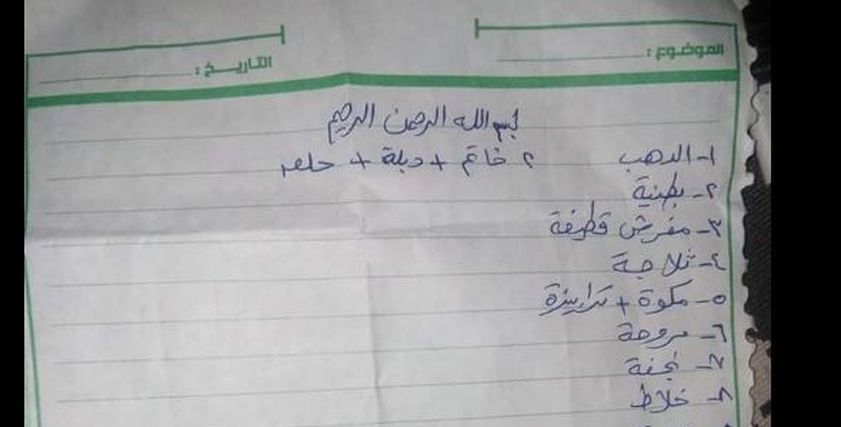 الموضوع :
التاريخ :
بسم الله الرحمن الرحيم
١- الدهب ٢ خاتم + دبلة + حلق
٢- بطنية
٣- مفرش قطيفة
٤- ثلاجة
٥- مكوة + ترابيزة
٦- مروحة
٧- نجفة
٨- خلاط